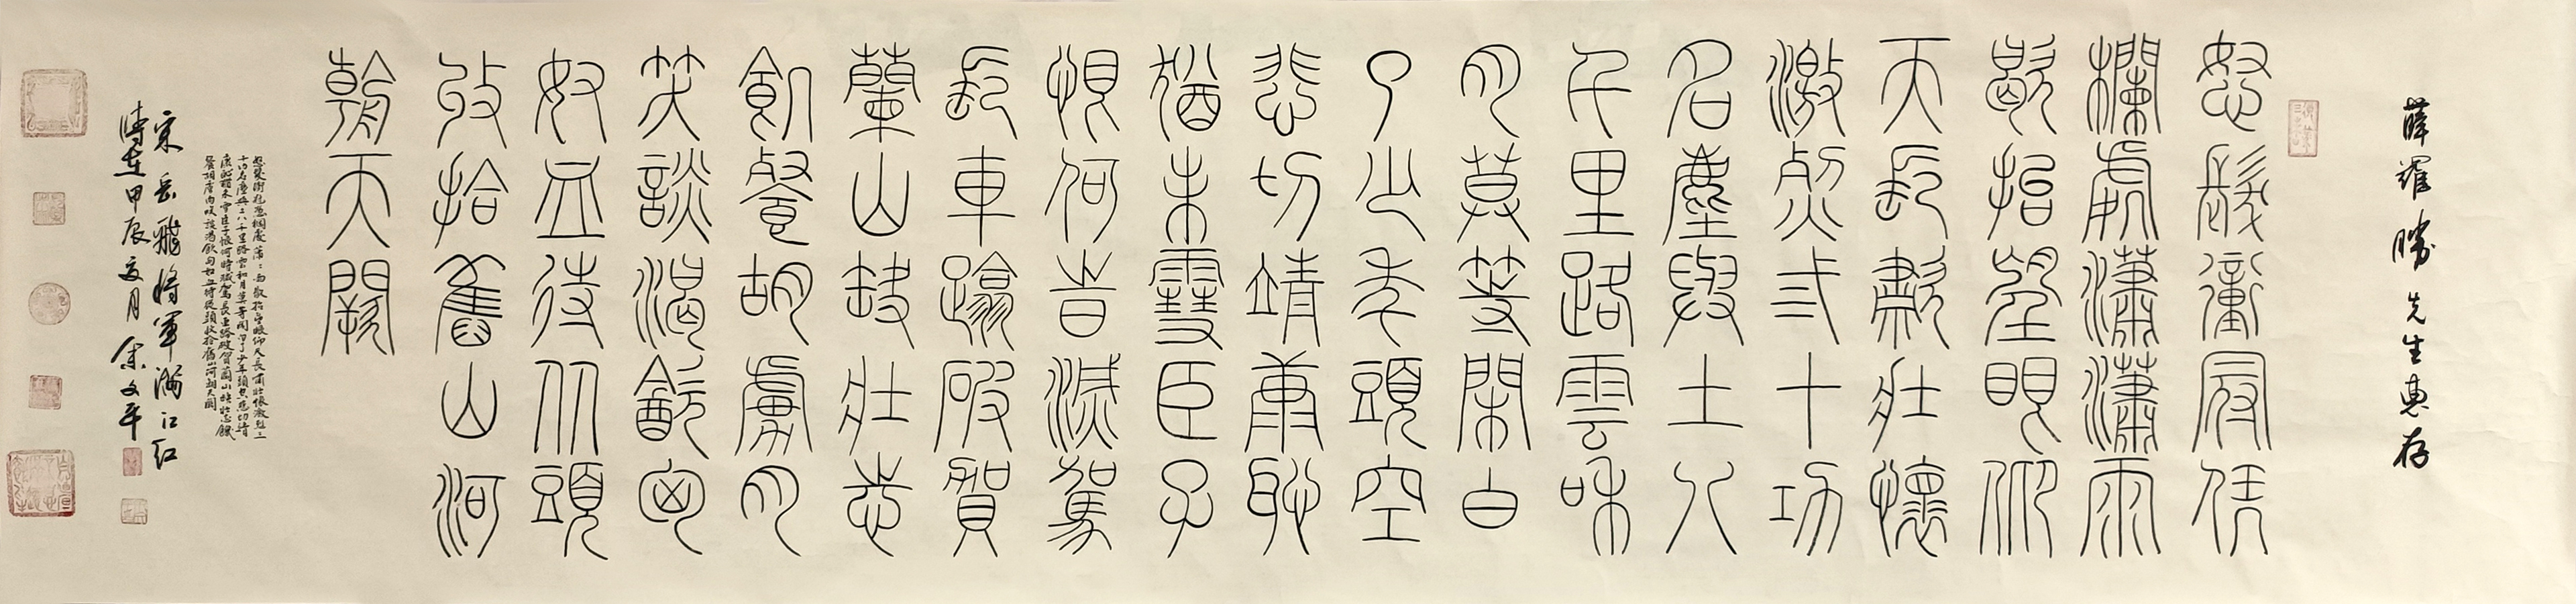 薛耀勝先生惠存
怒髮衝冠凭
欄處瀟瀟雨
歇抬望眼仰
天長嘯壯懷
激烈弎十功
名塵與土八
千里路雲咊
月莫等閑白
了少年頭空
悲切靖康恥
猶未雪臣子
恨何時滅駕
長車踏破賀
蘭山缺壯志
飢餐胡虜肉
笑談渴飲匈
奴血待從頭
收拾舊山河
朝天闕
怒髮衝冠憑欄處瀟瀟雨歇抬望眼仰天長嘯壯懷激烈三
十功名塵與土八千里路雲和月莫等閑白了少年頭空悲切靖
康恥猶未雪臣子恨何時滅駕長車踏破賀蘭山缺壯志飢
餐胡虜肉笑談渴飲匈奴血待從頭收拾舊山河朝天闕
宋岳飛將軍滿江红
時在甲辰夏月余文平